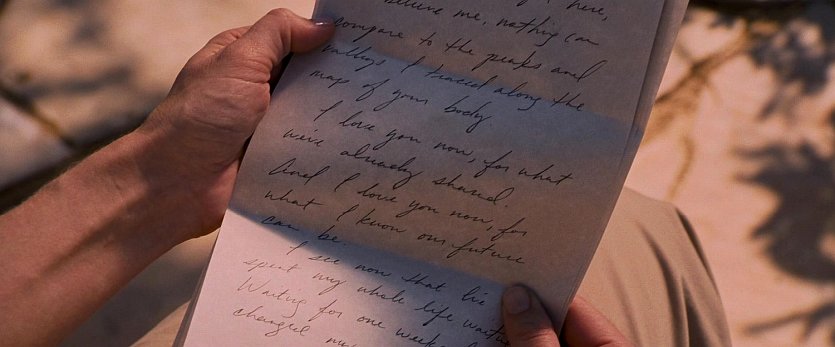 believe me, nothing can
compare to the peaks and
valleys I traced along the
map of your body.
I love you now, for what
we've already shared.
And I love you now, for
what I know our future
can be.
I see now that I've
spent my whole life waiting
Waiting for one week
changed my